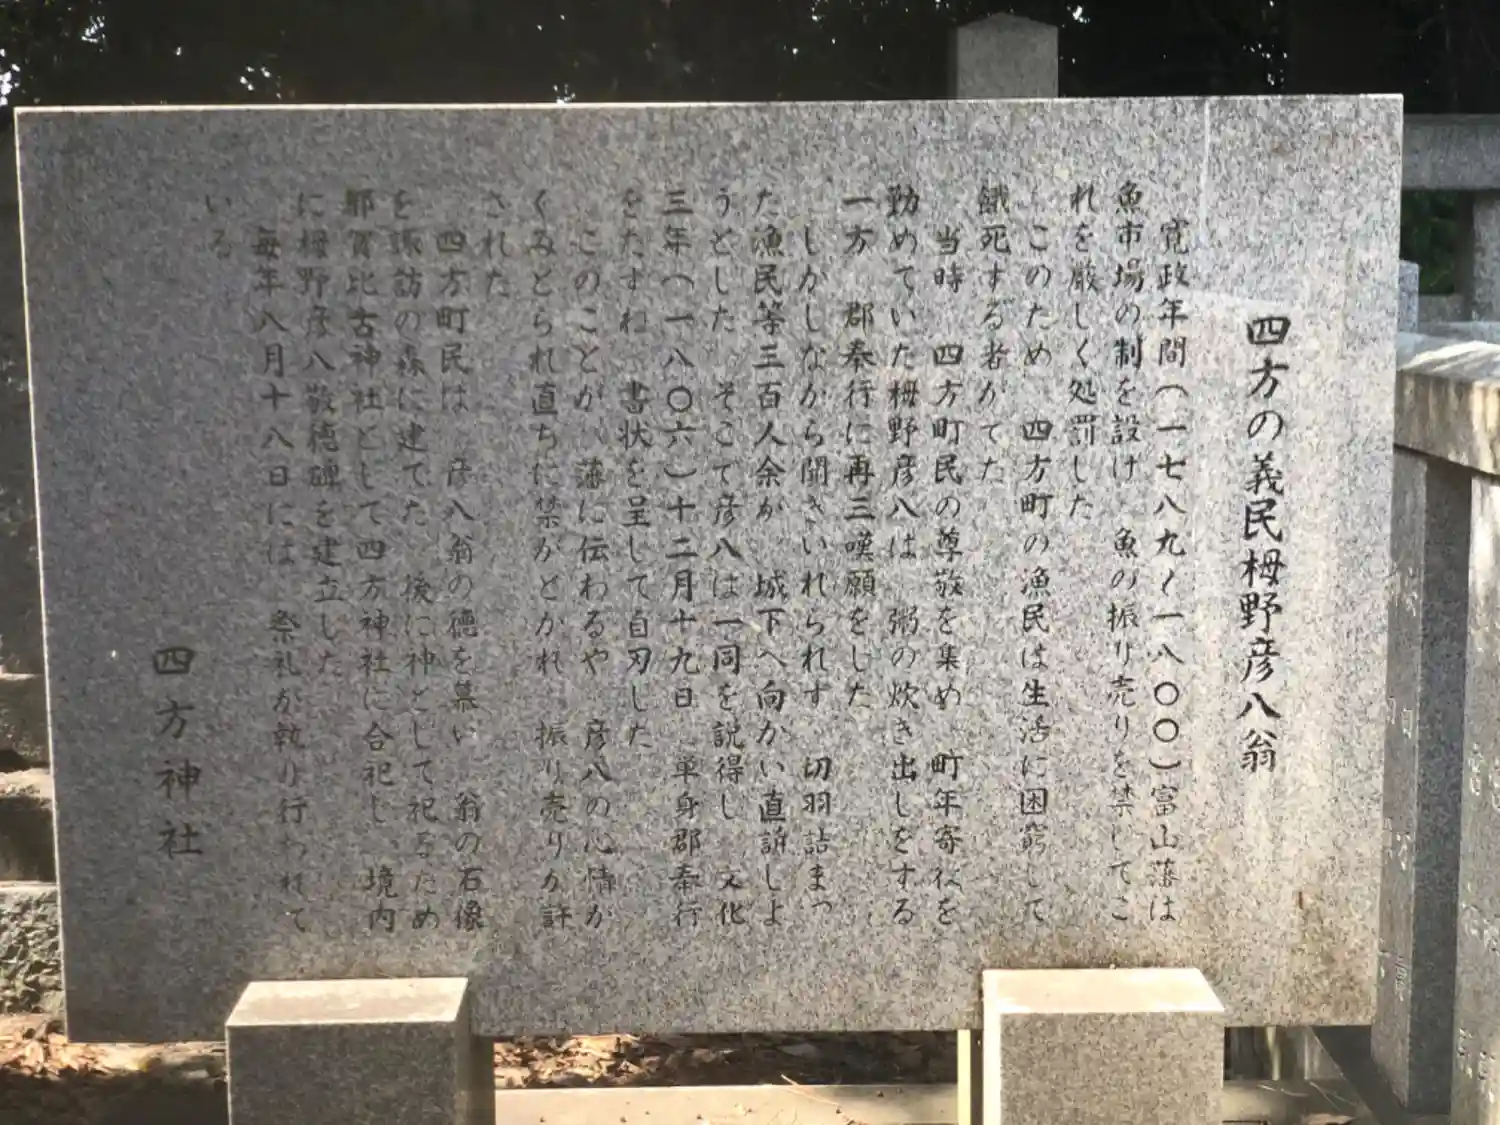 四方の義民栂野彦八翁
寛政年間(一七八九〜一八〇〇)富山藩は
魚市場の制を設け 魚の振り売りを禁じてこ
れを厳しく処罰した
このため 四方町の漁民は生活に困窮して
餓死する者がでた
当時 四方町民の尊敬を集め 町年寄役を
勤めていた栂野彦八は 粥の炊き出しをする
一方 郡奉行に再三嘆願をした
しかしながら聞きいれられず 切羽詰まっ
た漁民等三百人余が 城下へ向かい直訴しよ
うとした そこで彦八は一同を説得し 文化
三年(一八〇六)十二月十九日 単身郡奉行
をたずね 書状を呈して自刃した
このことが 藩に伝わるや 彦八の心情が
くみとられ直ちに禁がとかれ 振り売りが許
された
四方町民は 彦八翁の徳を慕い 翁の石像
を諏訪の森に建てた 後に神として祀るため
耶賀比古神社として四方神社に合祀し 境内
に栂野彦八敬徳碑を建立した
毎年八月十八日には 祭礼が執り行われて
いる
四方神社